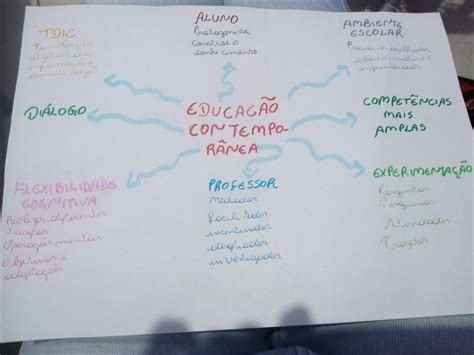 TDIC
Tecnologias
digitais da
informação e
comunicação
ALUNO
Protagonista
Constrói o
conhecimento
AMBIENTE
ESCOLAR
DIÁLOGO
EDUCAÇÃO
CONTEMPO-
RÂNEA
COMPETÊNCIAS
MAIS
AMPLAS
FLEXIBILIDADE
COGNITIVA
Realizar diferentes
tarefas
Operações mentais
Objetivos e
adaptações
PROFESSOR
Mediador
facilitador
incentivador
desafiador
investigador
EXPERIMENTAÇÃO
Perguntas
Pesquisas
Atividades
Projetos